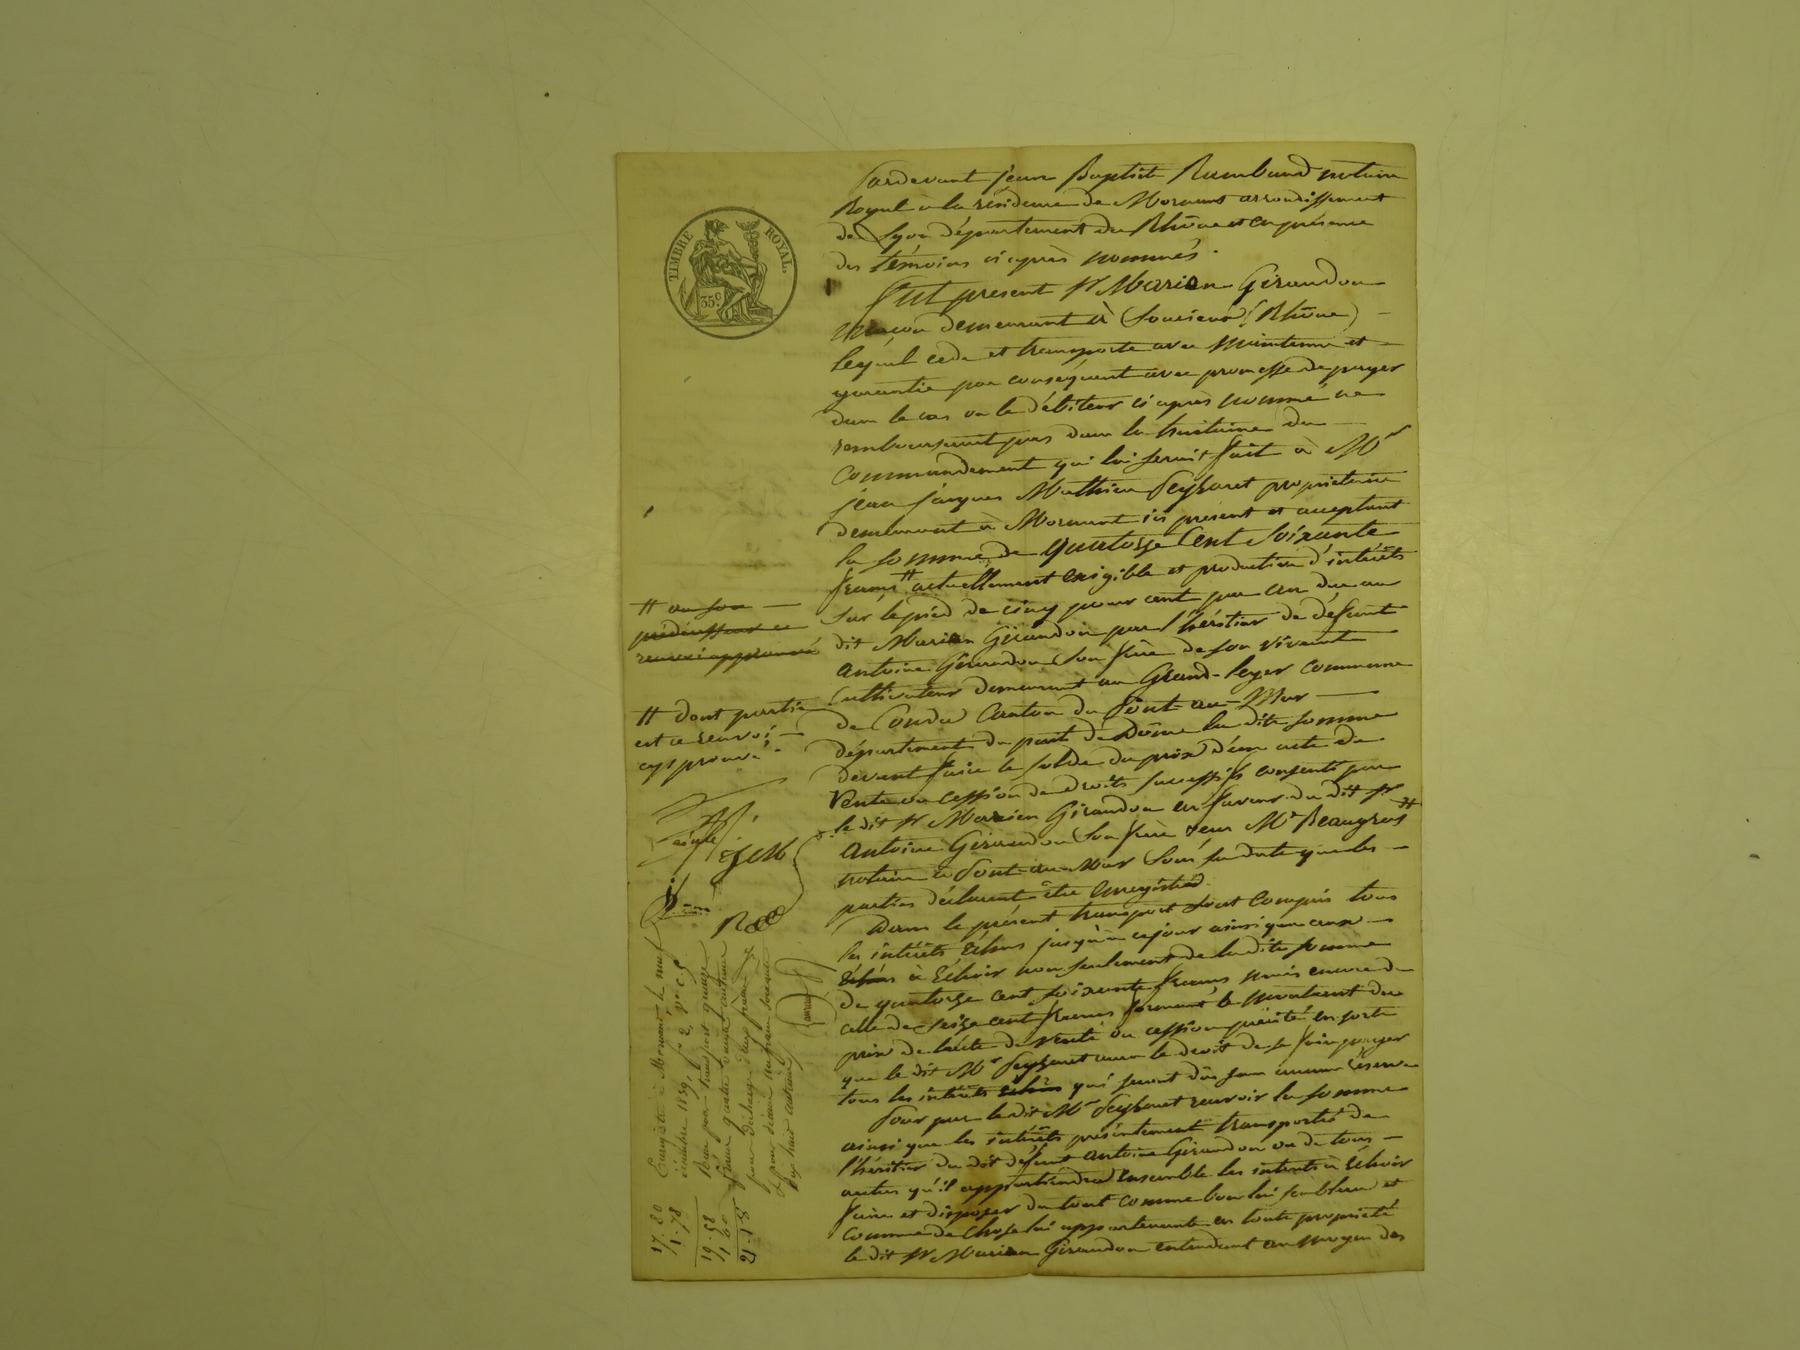 TIMBRE ROYAL.
35c
Pardevant jean Baptiste Rambaud notaire
Royal a la résidence de Mornant arrondissement
de Lyon département du Rhône et en présence
des témoins ci après nommés.
Fut présent sr Marien Giraudon
maçon demeurant à Soucieux (Rhône) —
lequel cede et transporte avec maintenue et —
garantie par conséquent avec promesse de payer
dans le cas ou le débiteur ci après nommé ne
rembourserait pas dans la huitaine du —
commandement qui lui serait fait à Mr
jean jacques Mathieu Peyssaret propriétaire
demeurant à Mornant ici présent et acceptant
la somme de quatorze cent soixante
francs # actuellement exigible et productive d'intérêts
sur le pied de cinq pour cent par an due au
dit Marien Giraudon par l'héritier de défunt
antoine Giraudon son frère de son vivant
cultivateur demeurant au Grand-leger commune
de Condat Canton du Pont-au-Mur —
département du puit de Dôme la dite somme
devant faire le solde du prix d'un acte de
vente ou cession de droits successifs consenti par
le dit sr Marien Giraudon en faveur du dit sr
antoine Giraudon son frère devant Mr Beaugros #
notaire à Pont-au-Mur sous sa date que les —
parties déclarent être enregistré.
Dans le présent transport sont compris tous
les intérêts échus jusqu'à ce jour ainsi que ceux —
échus à échoir non seulement de la dite somme
de quatorze cent soixante francs mais encore de
celle de seize cent francs formant le montant du
prix de l'acte de vente ou cession précité en sorte
que le dit Mr Peyssaret aura le droit de se faire payer
tous les intérêts échus qui seront dûs sans aucune réserve
Pour par le dit Mr Peyssaret recevoir la somme
ainsi que les intérêts présentement transportés de
l'héritier du dit défunt antoine Giraudon ou de tous —
autres qu'il appartiendra ensemble les intérêts à échoir
faire et disposer du tout comme bon lui semblera et
comme de chose lui appartenante en toute propriété
le dit sr Marien Giraudon entendant au moyen des
# ou son —
prédécesseur ce
renvoi approuvé
# dont partie
est ce renvoi —
approuvé
JJM
Enregistré à Mornant le neuf
1839, fo 2, vo c 5
Reçu pour transport quinze
17.80
1.78
19.58
1 60
21.18